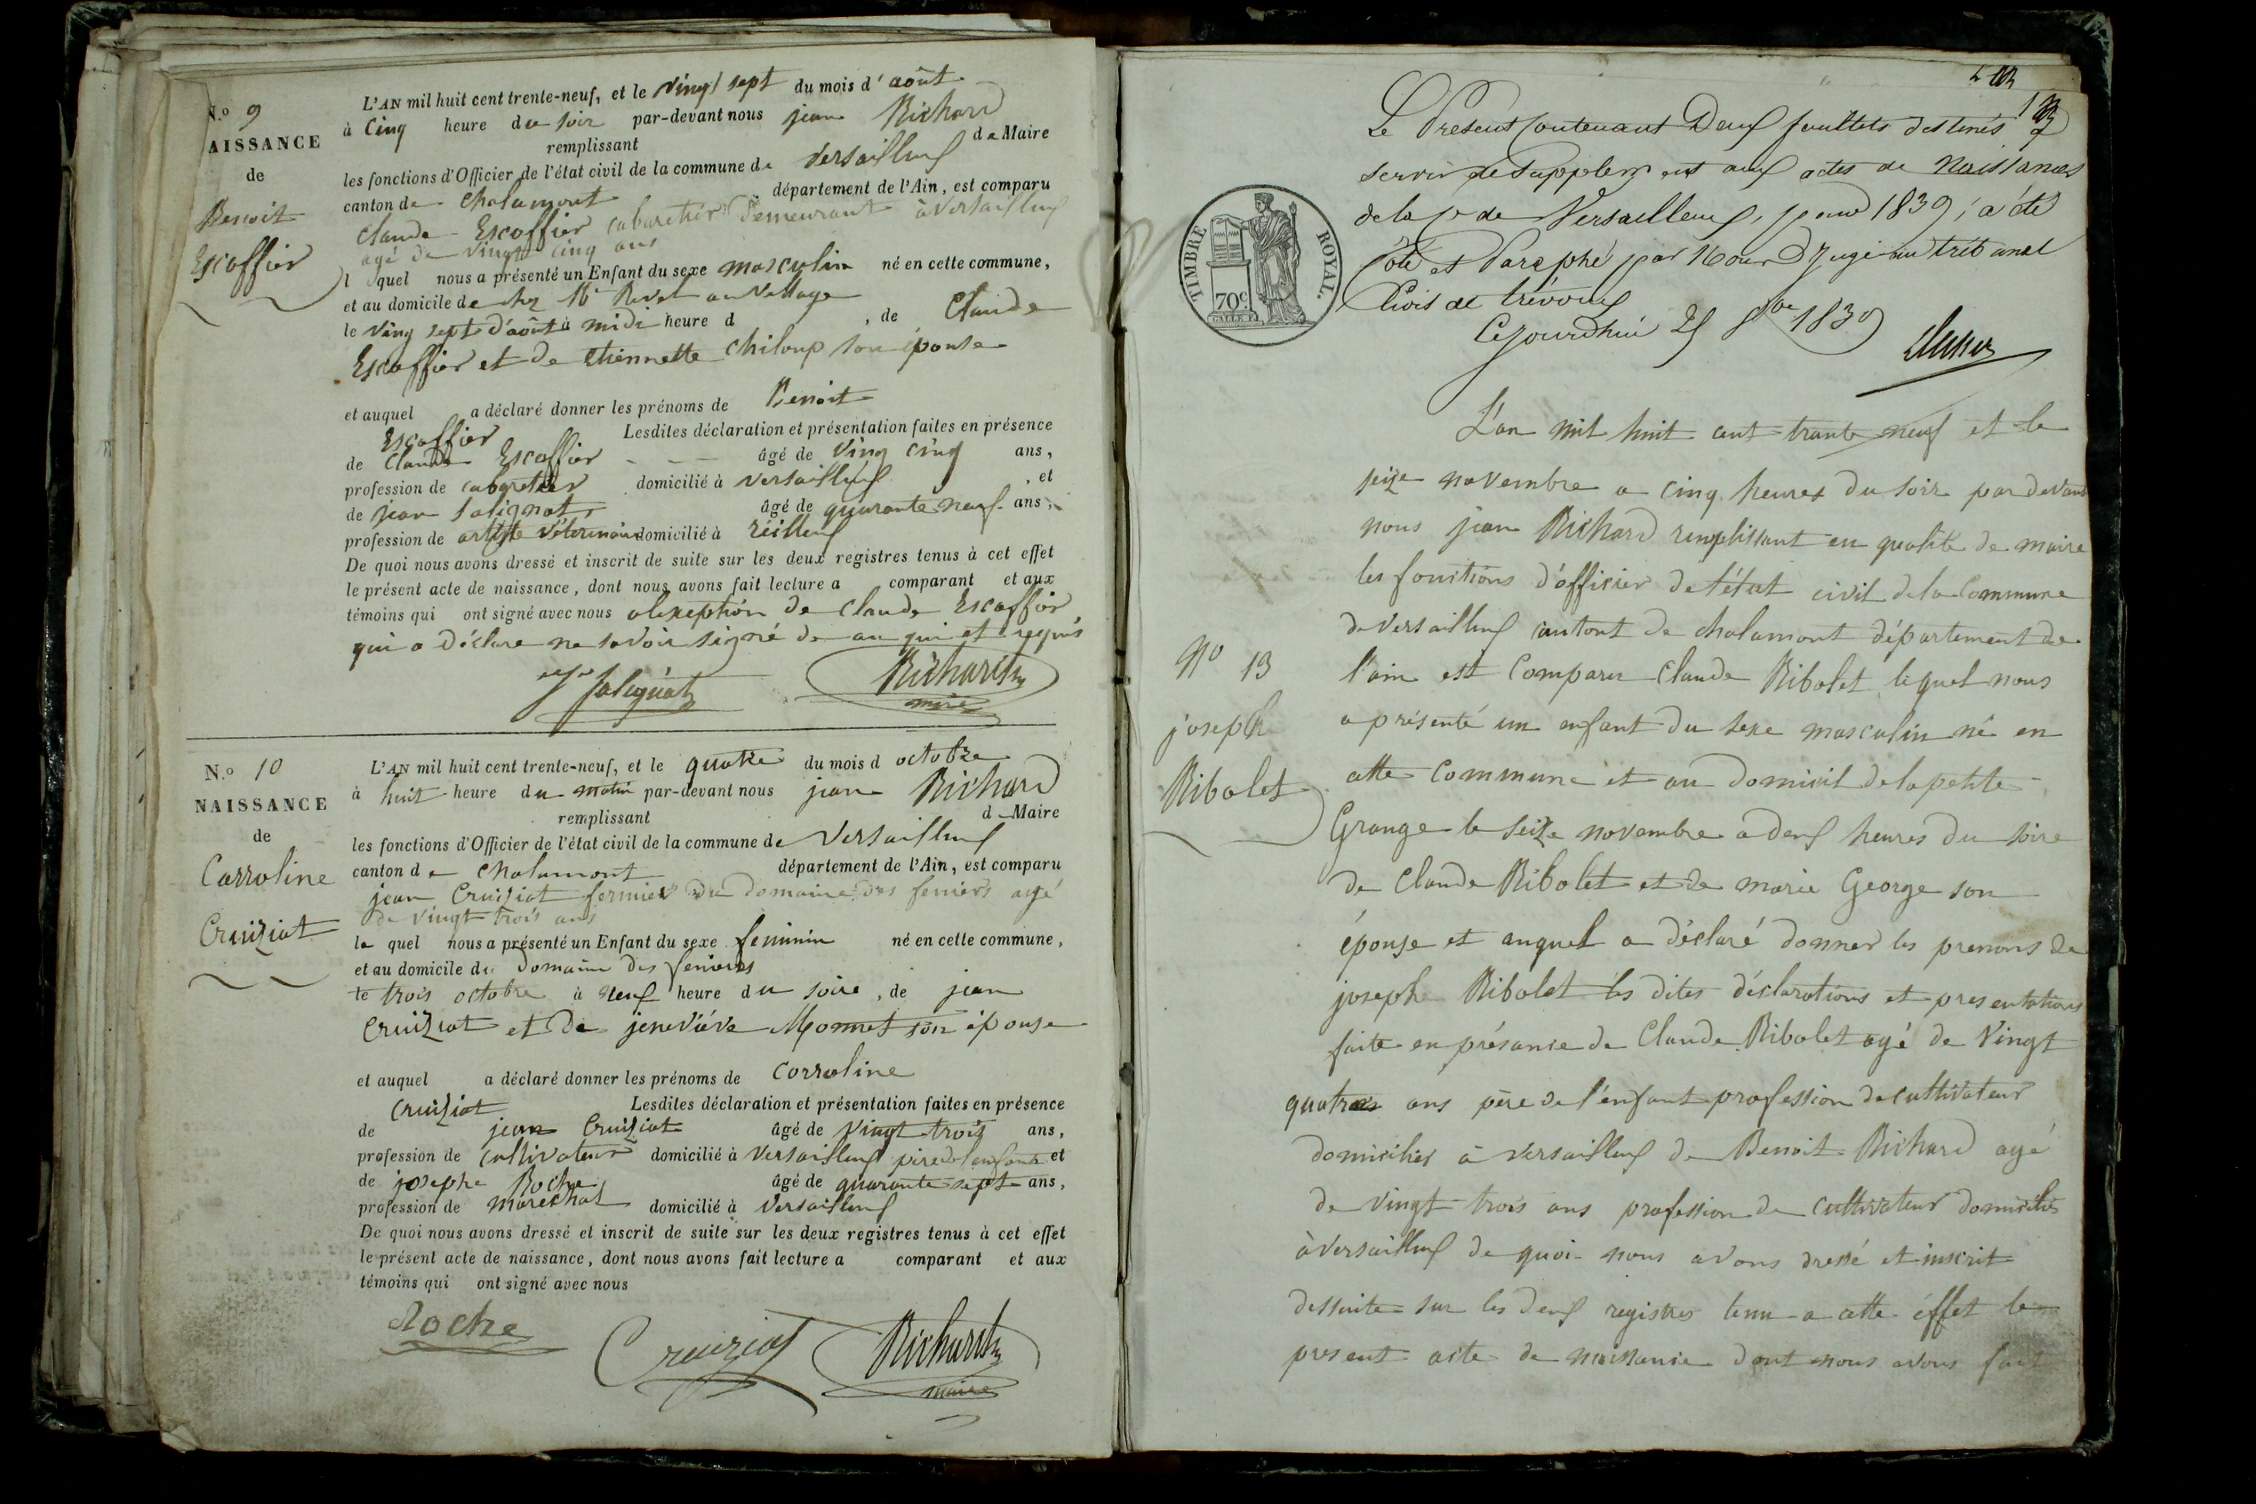 N.o 9
AISSANCE
de
Benoit
Escoffier
L'AN mil huit cent trente-neuf, et le vingt sept du mois d' août
à Cinq heure du soir par-devant nous jean Richard
remplissant de Maire
les fonctions d'Officier de l'état civil de la commune de Versailleux
canton de chalamont département de l'Ain, est comparu
Claude Escoffier cabaretier demeurant à Versailleux
agé de vingt cinq ans
l quel nous a présenté un Enfant du sexe masculin né en cette commune,
et au domicile de chez Mr Rivet au village
le ving sept d'août à midi heure d , de Claude
Escoffier et de etiennette Chiloup son épouse
et auquel a déclaré donner les prénoms de Benoit
Escoffier Lesdites déclaration et présentation faites en présence
de Claude Escoffier âgé de Ving cinq ans,
profession de cabaretier domicilié à Versailleux , et
de jean Salignat âgé de quarante neuf ans,
profession de artiste Véterinaire domicilié à réilleux
De quoi nous avons dressé et inscrit de suite sur les deux registres tenus à cet effet
le présent acte de naissance, dont nous avons fait lecture a comparant et aux
témoins qui ont signé avec nous alexeption de Claude Escoffier
qui a déclare ne savoir signé de au qui et requis
Salignat Richard
maire
N.o 10
NAISSANCE
de
Carroline
Cruiziat
L'AN mil huit cent trente-neuf, et le quatre du mois d octobre
à huit heure du matin par-devant nous jean Richard
remplissant d Maire
les fonctions d'Officier de l'état civil de la commune de Versailleux
canton de chalamont département de l'Ain, est comparu
jean Cruiziat fermier du domaine des feniers agé
de vingt trois ans
le quel nous a présenté un Enfant du sexe feminin né en cette commune,
et au domicile du domaine des feniers
le trois octobre à neuf heure du soire, de jean
Cruiziat et de jeneviéve Monnet son épouse
et auquel a déclaré donner les prénoms de Corroline
Cruiziat Lesdites déclaration et présentation faites en présence
de jean Cruiziat âgé de vingt trois ans,
profession de cultivateur domicilié à Versailleux pere de lenfant et
de josephe Roche âgé de quarante sept ans,
profession de marechal domicilié à Versailleux
De quoi nous avons dressé et inscrit de suite sur les deux registres tenus à cet effet
le présent acte de naissance, dont nous avons fait lecture a comparant et aux
témoins qui ont signé avec nous
Roche Cruiziat Richard
maire
Le Présent Contenant Deux feuillets destinés à
servir de Supplement aux actes de Naissances
de la Cne de Versailleux, pour 1839, a été
Côté et Paraphé par Nous Juge au tribunal
Civis de trévoux
Cejourdhui 25 8bre 1839
TIMBRE ROYAL.
70c
L'an mil huit cent trante neuf et le
seize novembre a cinq heures du soir par devant
nous jean Richard remplissant en qualité de maire
les fonctions d'officier de l'état civil de la Commune
de Versailleux cantont de chalamont département de
l'ain est Comparu Claude Ribolet le quel nous
a présenté un enfant du sexe masculin né en
cette Commune et au domicil de la petite
Grange le seize novembre a deux heures du soire
de Claude Ribolet et de marie George son
épouse et auquel a déclaré donner les prenoms de
josephe Ribolet les dites déclarations et presentations
faite en présance de Claude Ribolet agé de Vingt
quatres ans père de l'enfant profession de cultivateur
domiciliés à Versailleux de Benoit Richard agé
de vingt trois ans profession de cultivateur domiciliés
à Versailleux de quoi nous avons dressé et inscrit
dessuite sur les deux registres tenu a cette éffet le
present acte de naissance dont nous avons fait
No 13
joseph
Ribolet